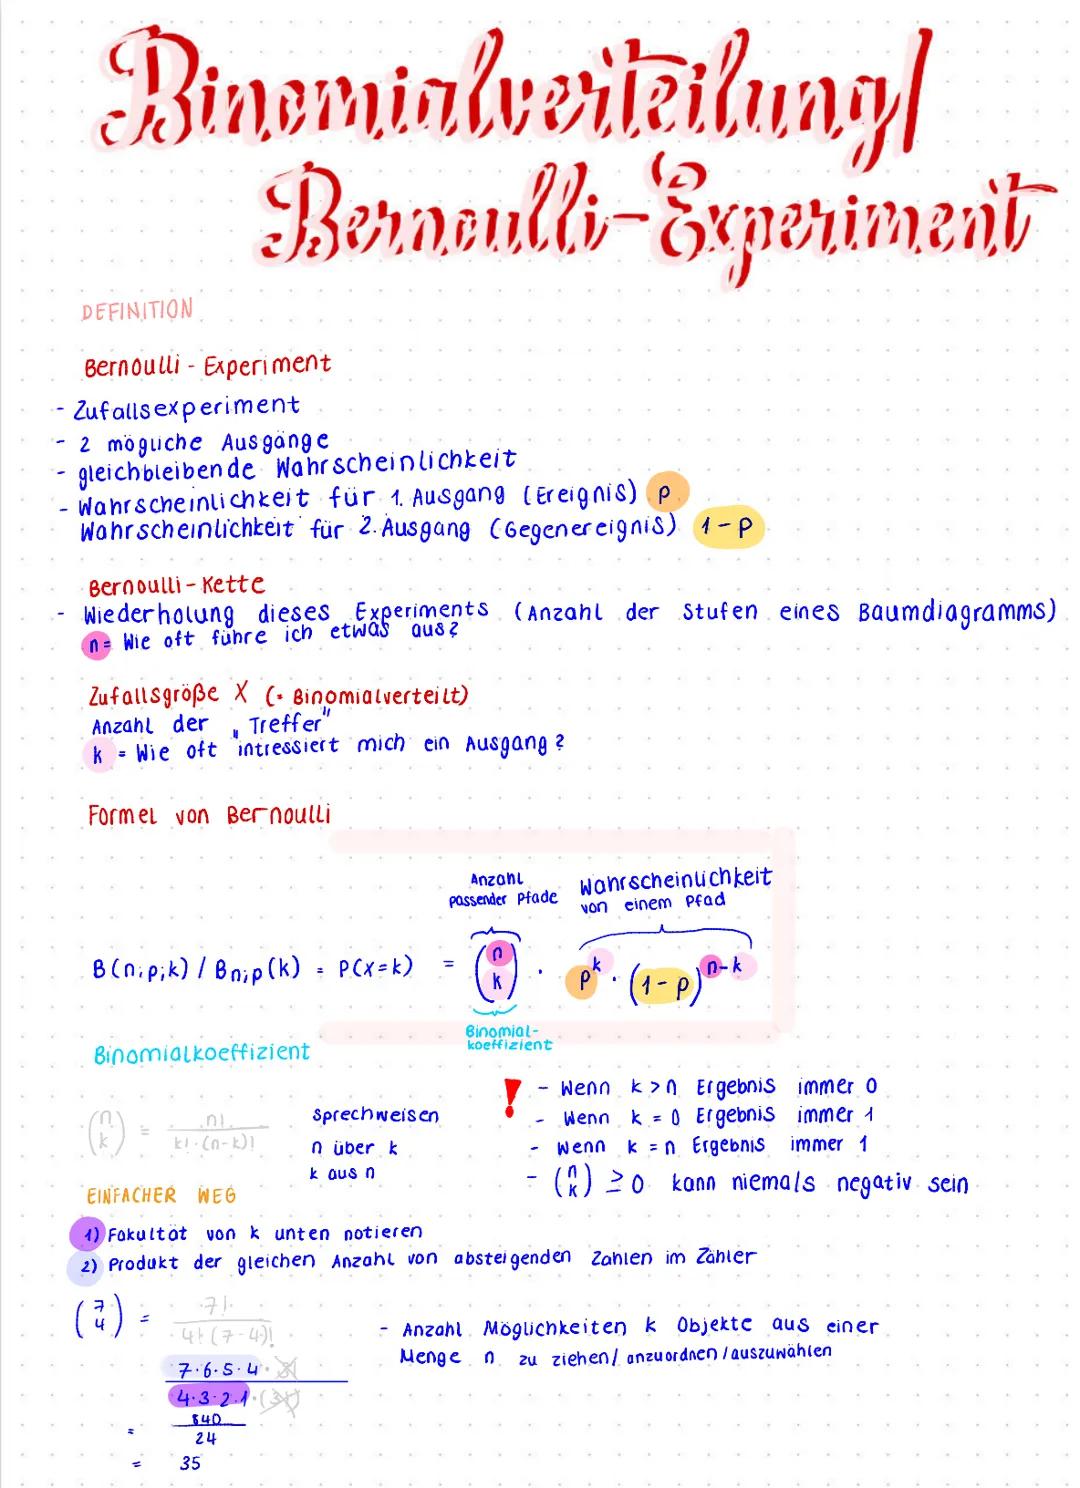 Binomialverteilung/
Bernoulli-Experiment
DEFINITION
Bernoulli - Experiment
- Zufallsexperiment
- 2 mögliche Ausgänge
- gleichbleibende Wahrscheinlichkeit
- Wahrscheinlichkeit für 1. Ausgang (Ereignis) p
Wahrscheinlichkeit für 2. Ausgang (Gegenereignis) 1-p
Bernoulli-Kette
- Wiederholung dieses Experiments (Anzahl der Stufen eines Baumdiagramms)
n= Wie oft führe ich etwas aus?
Zufallsgröße X (· Binomialverteilt)
Anzahl der "Treffer"
k = Wie oft intressiert mich ein Ausgang?
Formel von Bernoulli
Anzahl passender Pfade
Wahrscheinlichkeit von einem Pfad
B(n;p;k) / Bn;p(k) = P(X=k) = (n k) · p^k · (1-p)^n-k
Binomial-
koeffizient
Binomialkoeffizient
(n k) = n! / k!·(n-k)!
Sprechweisen
n über k
k aus n
! - Wenn k>n Ergebnis immer 0
- Wenn k=0 Ergebnis immer 1
- Wenn k=n Ergebnis immer 1
- (n k) ≥0 kann niemals negativ sein
EINFACHER WEG
1) Fakultät von k unten notieren
2) Produkt der gleichen Anzahl von absteigenden Zahlen im Zähler
(7 4) = 7! / 4!·(7-4)!
- Anzahl Möglichkeiten k Objekte aus einer
Menge n zu ziehen/ anzuordnen /auszuwählen
7·6·5·4·3!
4·3·2·1·(3!)
= 840
24
= 35